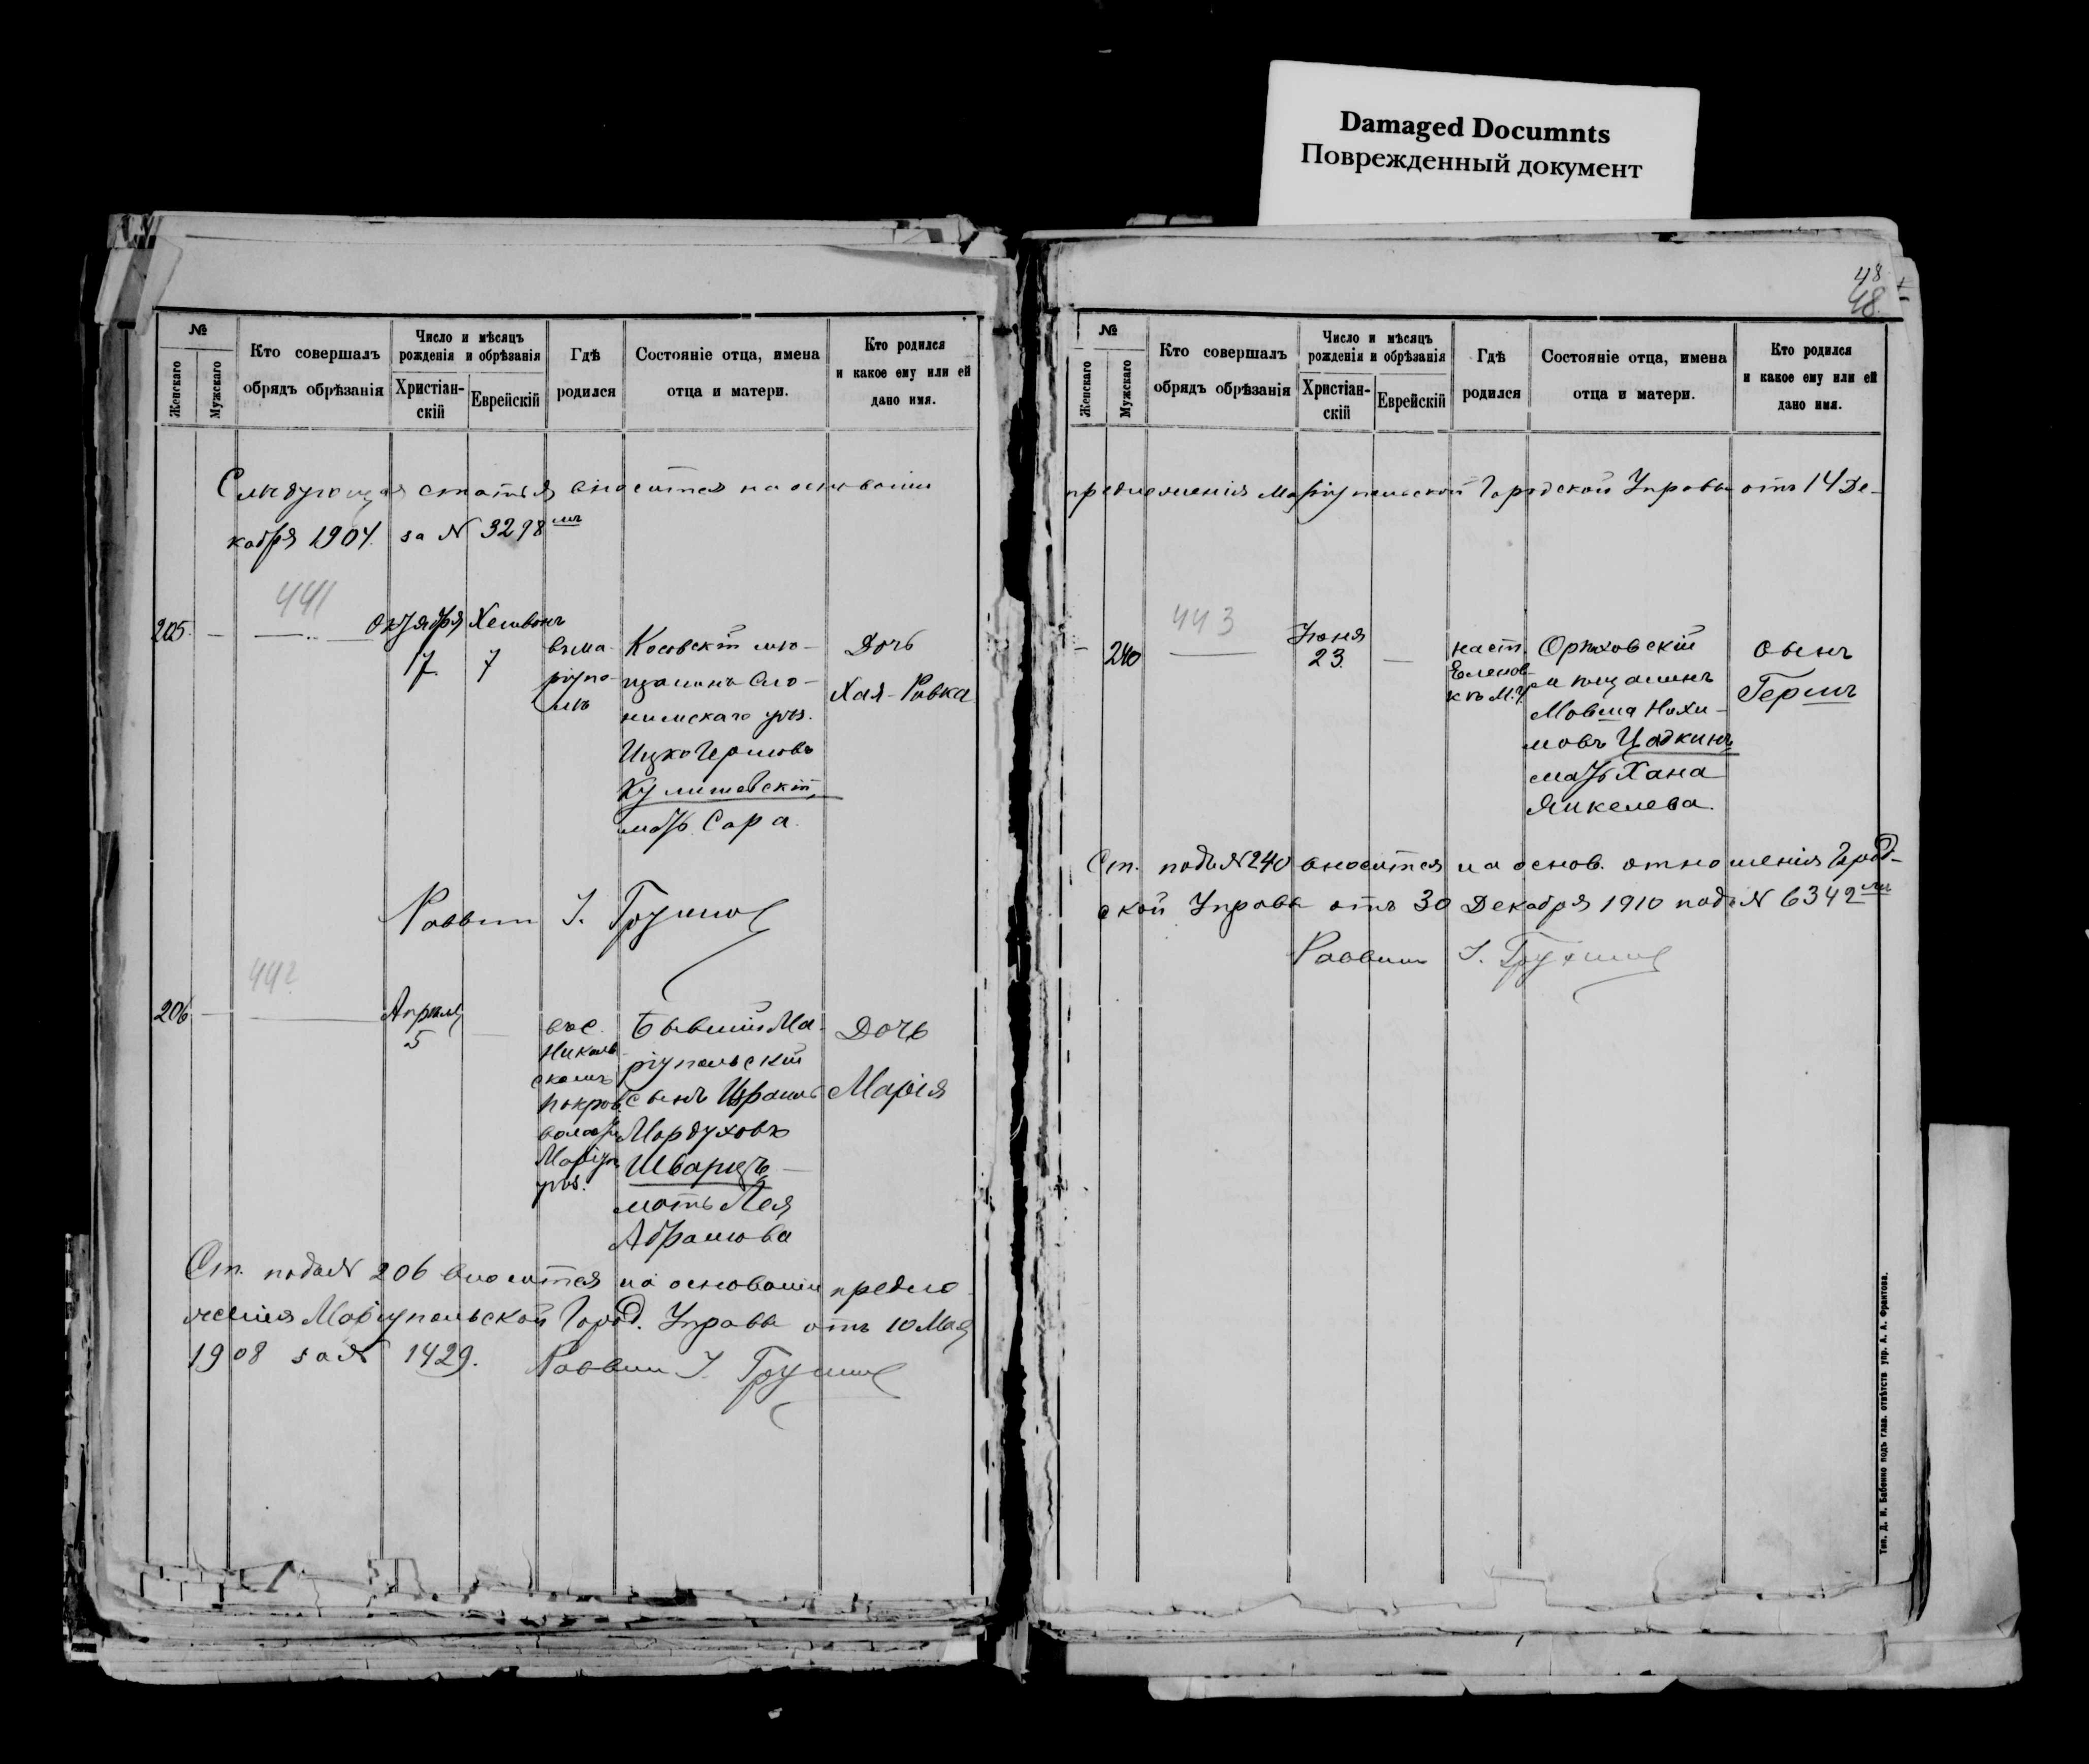 Damaged Documnts
Поврежденный документ
48
48.
№
Женскаго
Мужскаго
Кто совершалъ
обрядъ обрѣзанія
Число и мѣсяцъ
рожденія и обрѣзанія
Христіан-
скій
Еврейскій
Гдѣ
родился
Состояніе отца, имена
отца и матери.
Кто родился
и какое ему или ей
дано имя.
Слѣдующая статья вносится на основаніи
кабря 1904. за № 3298мъ
441
205.
Октября
7
Хешвонъ
7
въ Ма-
ріупо-
лѣ
Косовскій мѣ-
щанинъ Сло-
нимскаго уѣз.
Ицко Гершовъ
Кулишевскій
мать Сара.
Дочь
Хая-Ривка
Раввин І.
442
206
Апрѣля
5
въ с.
Николь-
скомъ
Покров.
волости
Маріуп.
уѣз.
Бывшій Ма-
ріупольскій
сынъ Израиль
Мордуховъ
Шварцъ
мать Лея
Абрамова
Дочь
Марія
Ст. подъ № 206 вносится на основаніи предло-
женія Маріупольской Город. Управы отъ 10 Мая
1908 за № 1429. Раввин І.
№
Женскаго
Мужскаго
Кто совершалъ
обрядъ обрѣзанія
Число и мѣсяцъ
рожденія и обрѣзанія
Христіан-
скій
Еврейскій
Гдѣ
родился
Состояніе отца, имена
отца и матери.
Кто родился
и какое ему или ей
дано имя.
предложенія Маріупольской Городской Управы отъ 14 Де-
443
240
Іюня
23
на ст.
Еленов-
кѣ М. у.
Орѣховскій
мѣщанинъ
Мовша Нохи-
мовъ Цодкинъ
мать Хана
Янкелева.
сынъ
Гершъ
Ст. подъ № 240 вносится на основ. отношенія Город-
ской Управы отъ 30 Декабря 1910 подъ № 6342мъ
Раввин І.
Тип. Д. Н. Бабенко подъ глав. отвѣтств. упр. А. А. Франтова.